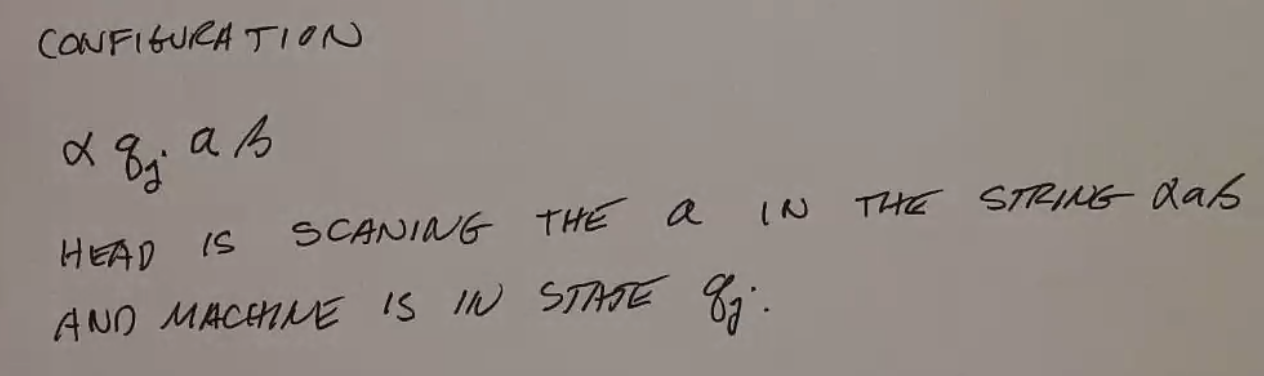 CONFIGURATION
α qⱼ a β
HEAD IS SCANING THE a IN THE STRING αaβ
AND MACHINE IS IN STATE qⱼ.